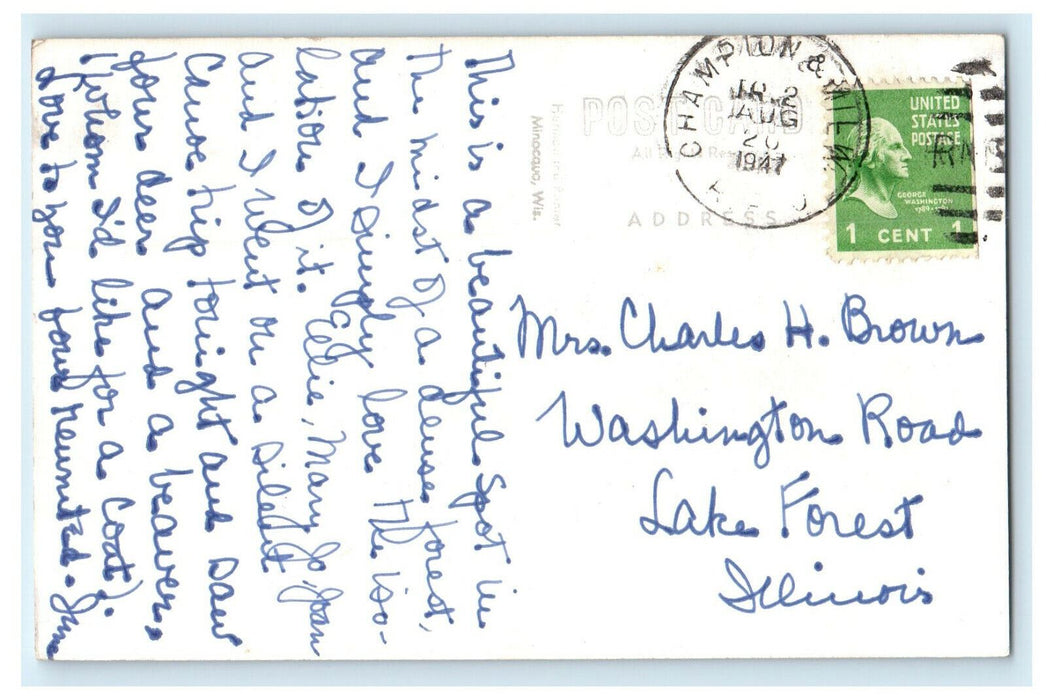 This is a beautiful spot in
the midst of a dense forest,
and I simply love the iso-
lation of it. Ellie, Mary Jo, Joan
and I went on a silent
canoe trip tonight and saw
four deer and a beaver,
(whom I'd like for a coat).
Love to you four
Minocqua, Wis.
POST CARD
ADDRESS
CHAMPION & MILW.
TR. 2
AUG
20
1947
R.P.O.
UNITED
STATES
POSTAGE
GEORGE
WASHINGTON
1 CENT 1
Mrs. Charles H. Brown
Washington Road
Lake Forest
Illinois